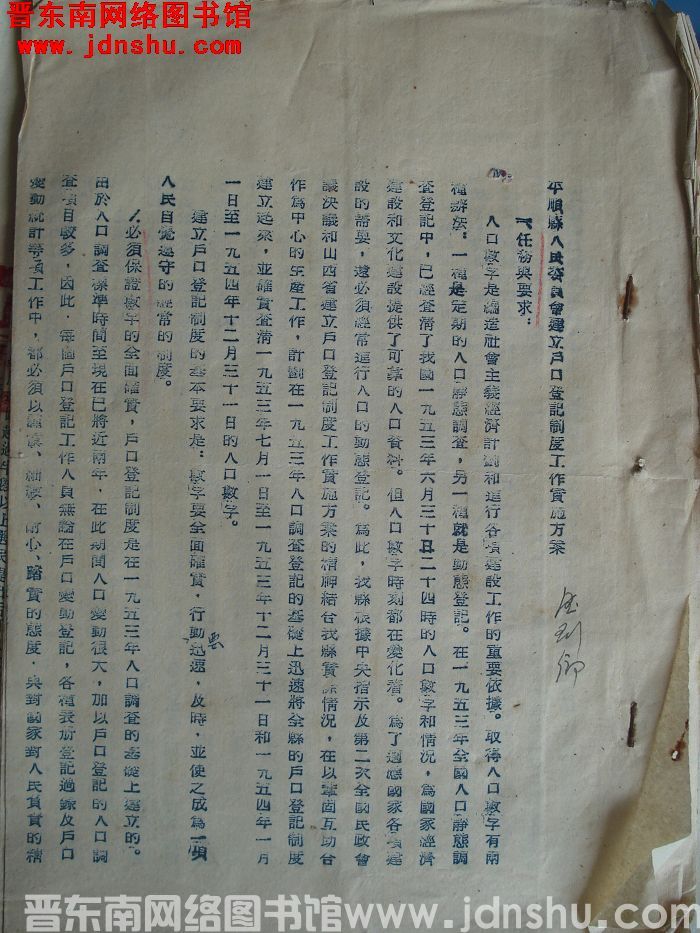 晋东南网络图书馆
www.jdnshu.com
平順縣人民委員會建立戶口登記制度工作實施方案
一、任務與要求：
人口數字是編造社會主義經濟計劃和進行各項建設工作的重要依據。取得人口數字有兩
種辦法：一種是定期的人口靜態調查，另一種就是動態登記。在一九五三年全國人口靜態調
查登記中，已經查清了我國一九五三年六月三十日二十四時的人口數字和情況，為國家經濟
建設和文化建設提供了可靠的人口資料。但人口數字時刻都在變化着。為了適應國家各項建
設的需要，還必須經常進行人口的動態登記。為此，我縣根據中央指示及第二次全國民政會
議決議和山西省建立戶口登記制度實施方案的精神結合我縣實際情況，在以鞏固互助合
作為中心的生產工作，計劃在一九五三年人口調查登記的基礎上迅速將全縣的戶口登記制度
建立起來，並確實查清一九五三年七月一日至一九五三年十二月三十一日和一九五四年一月
一日至一九五四年十二月三十一日的人口數字。
建立戶口登記制度的基本要求是：數字要全面確實，行動要迅速，及時，並使之成為一項
人民自覺遵守的經常的制度。
1.必須保證數字的全面確實，戶口登記制度是在一九五三年人口調查的基礎上建立的。
由於人口調查標準時間至現在已將近兩年，在此期間人口變動很大，加以戶口登記的人口調
查項目較多，因此，每個戶口登記工作人員無論在戶口變動登記，各種表册登記過錄及戶口
變動統計等項工作中，都必須以認真、細緻、耐心、踏實的態度，與對國家對人民負責的精
晋东南网络图书馆www.jdnshu.com